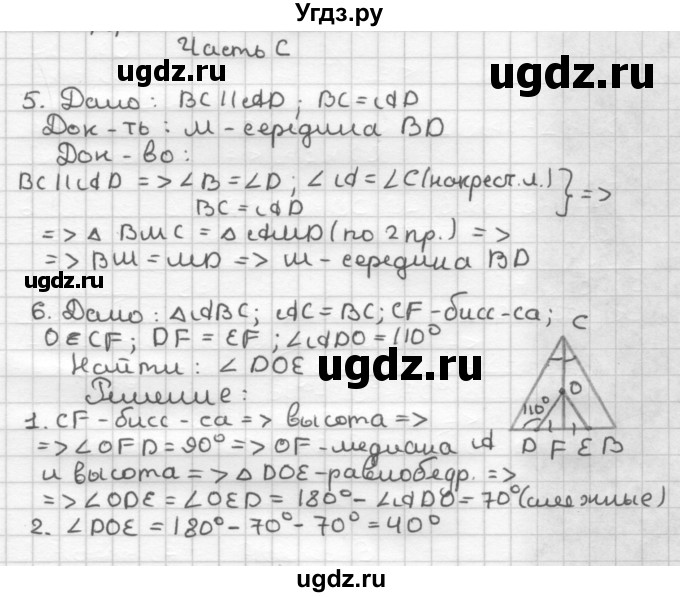 Угдз.ру
Часть С
ugdz.ru
5. Дано: BC||AD; BC=AD
Док-ть: M-середина BD
Док-во:
BC||AD => ∠B=∠D; ∠A=∠C(накрест.л.) } =>
BC=AD
=> △BMC=△AMD(по 2 пр.) =>
=> BM=MD => M-середина BD
ugdz.ru
6. Дано: △ABC; AC=BC; CF-бисс-са;
O∈CF; DF=EF; ∠ADO=110°
Найти: ∠DOE
ugdz.ru
Решение:
C
O
110°
A D F E B
1. CF-бисс-са => высота =>
=> ∠OFD=90° => OF-медиана
и высота => △DOE-равнобедр. =>
=> ∠ODE=∠OED=180°-∠ADO=70°(смежные)
2. ∠DOE=180°-70°-70°=40°
ugdz.ru
ugdz.ru